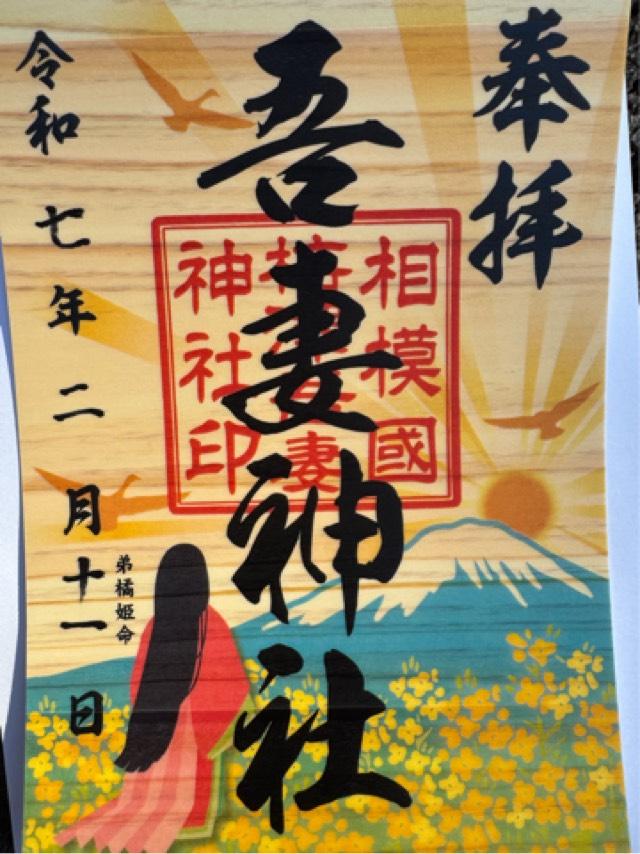 奉拝
吾妻神社
相模國
妻
神社印
令和七年二月十一日
弟橘姫命